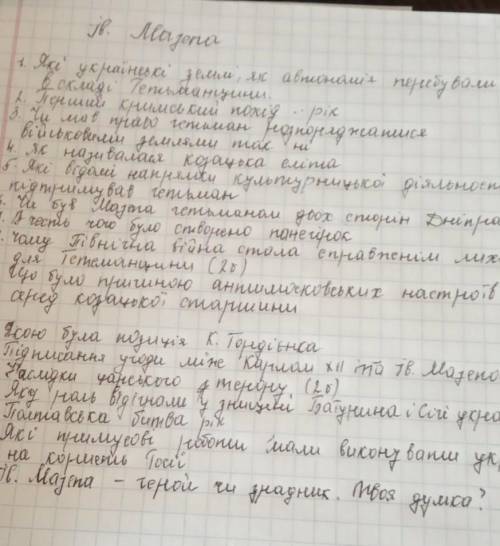 Ів. Мазепа
1. Які українські землі, як автономія перебували
в складі Гетьманщини.
2. Перший кримський похід .. рік
3. Чи мав право гетьман розпоряджатися
військовими землями так ні
4. Як називалася козацька еліта
5. Які відомі напрямки культурницької діяльност
підтримував гетьман
Чи був Мазепа гетьманом двох сторин Дніпра
В честь чого було створено панегірок
Чому Північна війна стала справжнім лих
для Гетьманщини (2б)
Що було причиною антимосковських настроїв
серед козацької старшини
Якою була позиція К. Гордієнка
Підписання угоди між Карлом XII та Ів. Мазепо
Наслідки царського терору (2б)
Яку роль відіграли у знищені Батурина і Січі укра
Полтавська битва рік
Які примусові роботи мали виконувати ук
на користь Росії
Ів. Мазепа - герой чи зрадник. Твоя думка?